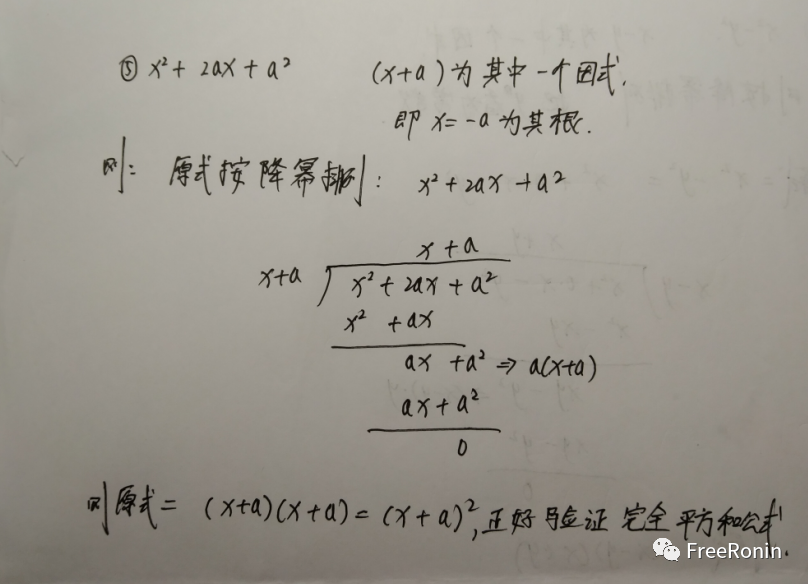 ⑤ x² + 2ax + a² (x+a)为其中一个因式.
即 x=-a 为其根.
则: 原式按降幂排列: x²+2ax+a²
x+a
x+a x²+2ax+a²
x² +ax
ax +a² ⇒ a(x+a)
ax+a²
0
则原式= (x+a)(x+a)=(x+a)²,正好验证 完全平方和公式.
FreeRonin